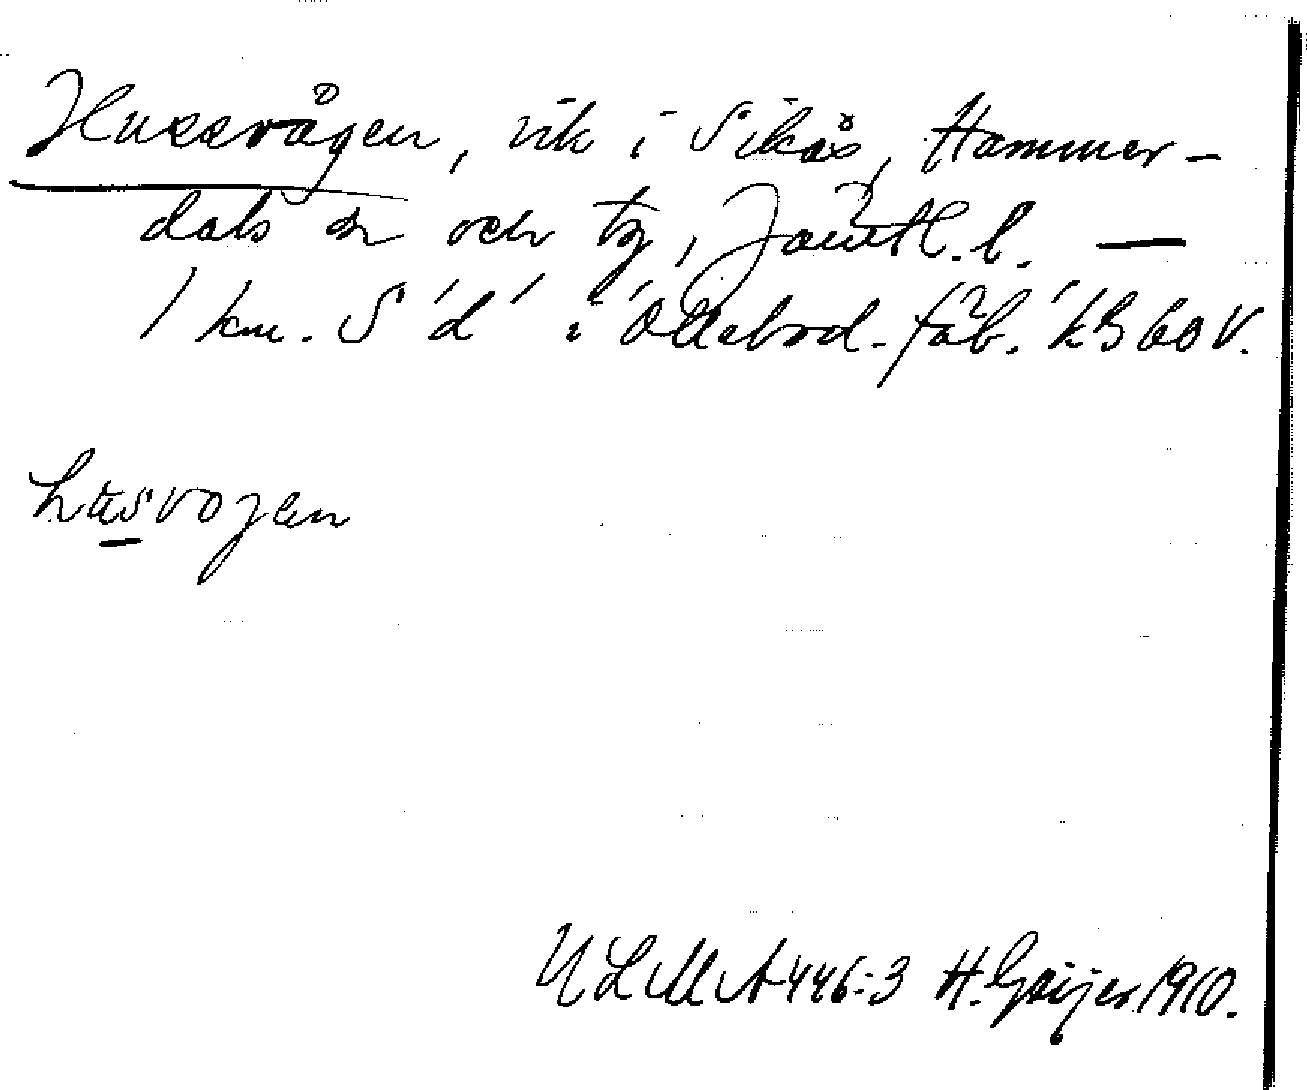 Hussvågen, vik i Sikås, Hammer-
dals sn och tg, Jämtl. l. —
1 km. S 'd' i 'Ollebod. fäb.' k3 60 V.
husvojen
ULMA 446:3 H. Geijer 1910.